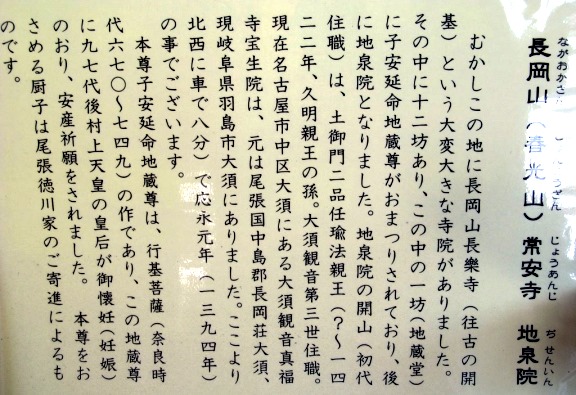 長岡山(春光山)常安寺 地泉院
ながおかさ
ざん じょうあんじ ぢせんいん
むかしこの地に長岡山長樂寺(往古の開
基)という大変大きな寺院がありました。
その中に十二坊あり、この中の一坊(地蔵堂)
に子安延命地蔵尊がおまつりされており、後
に地泉院となりました。地泉院の開山(初代
住職)は、土御門二品任瑜法親王(?〜一四
二二年、久明親王の孫。大須観音第三世住職。
現在名古屋市中区大須にある大須観音真福
寺宝生院は、元は尾張国中島郡長岡荘大須、
現岐阜県羽島市大須にありました。ここより
北西に車で八分)で応永元年(一三九四年)
の事でございます。
本尊子安延命地蔵尊は、行基菩薩(奈良時
代六七〇〜七四九)の作であり、この地蔵尊
に九七代後村上天皇の皇后が御懐妊(妊娠)
のおり、安産祈願をされました。 本尊をお
さめる厨子は尾張徳川家のご寄進によるも
のです。